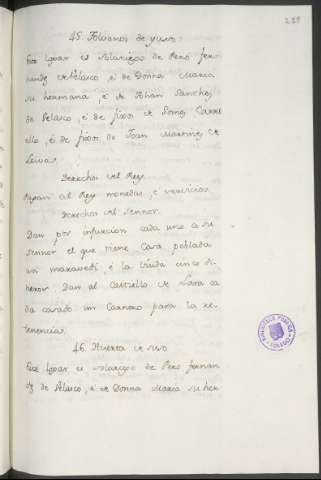 239
45. Tovanos de yuso.
Este logar es solariego de Pero fer-
nandez de Velasco, è de Donna Maria
su hermana, è de Johan Sanchez
de Velasco, è de fijos de Gomez Carri
ello, è de fijos de Joan Martinez de
Leiva.
Derechos del Rey.
Pagan al Rey monedas, è servicios.
Derechos del sennor.
Dan por infurcion cada uno a su
sennor el que tiene Casa poblada
un maravedi, è la viuda cinco di-
neros: Dan al Castiello de Lara ca
da casado un Carnero para la te-
nencia.
46. Huerta de yuso
Este logar es solariego de Pero fernan
dez de Velasco, è de Donna Maria su her
BIBLIOTECA PUBLICA
TOLEDO